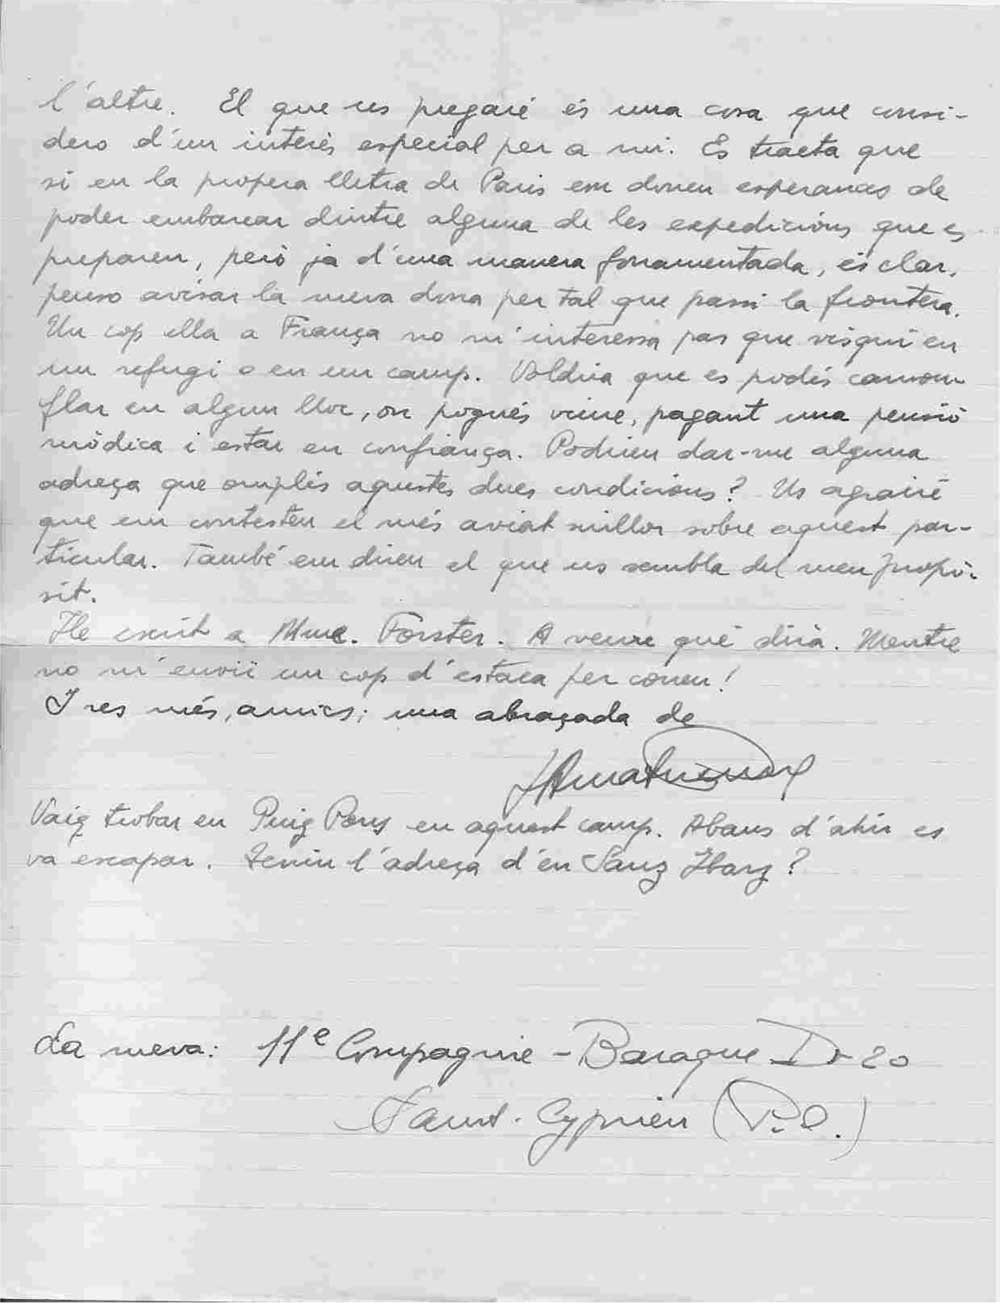 l'altre. El que us pregaré és una cosa que consi-
dero d'un interès especial per a mi. Es tracta que
si en la propera lletra de Paris em donen esperances de
poder embarcar dintre alguna de les expedicions que es
preparen, però ja d'una manera fonamentada, és clar,
penso avisar la meva dona per tal que passi la frontera.
Un cop ella a França no m'interessa pas que visqui en
un refugi o en un camp. Voldria que es podés camou-
flar en algun lloc, on pogués viure, pagant una pensió
mòdica i estar en confiança. Podrieu dar-me alguna
adreça que omplís aquestes dues condicions? Us agrairé
que em contesteu el més aviat millor sobre aquest par-
ticular. També em direu el que us sembla del meu propò-
sit.
He escrit a Mme. Forster. A veure què dirà. Mentre
no m'enviï un cop d'estaca per correu!
I res més, amics; una abraçada de
Vaig trobar en Puig Pons en aquest camp. Abans d'ahir es
va escapar. Teniu l'adreça d'en Sanz
La meva: 11e Compagnie - Baraque D-20
Saint-Cyprien (P.O.)